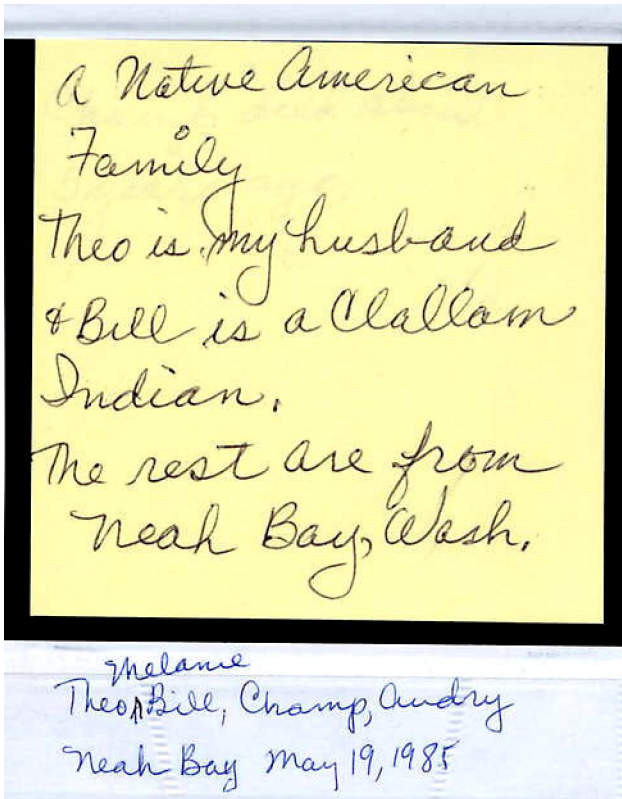 A Native American
Family
Theo is my husband
& Bill is a Clallam
Indian.
The rest are from
Neah Bay, Wash.
Melanie
Theo, Bill, Champ, Audry
Neah Bay May 19, 1985